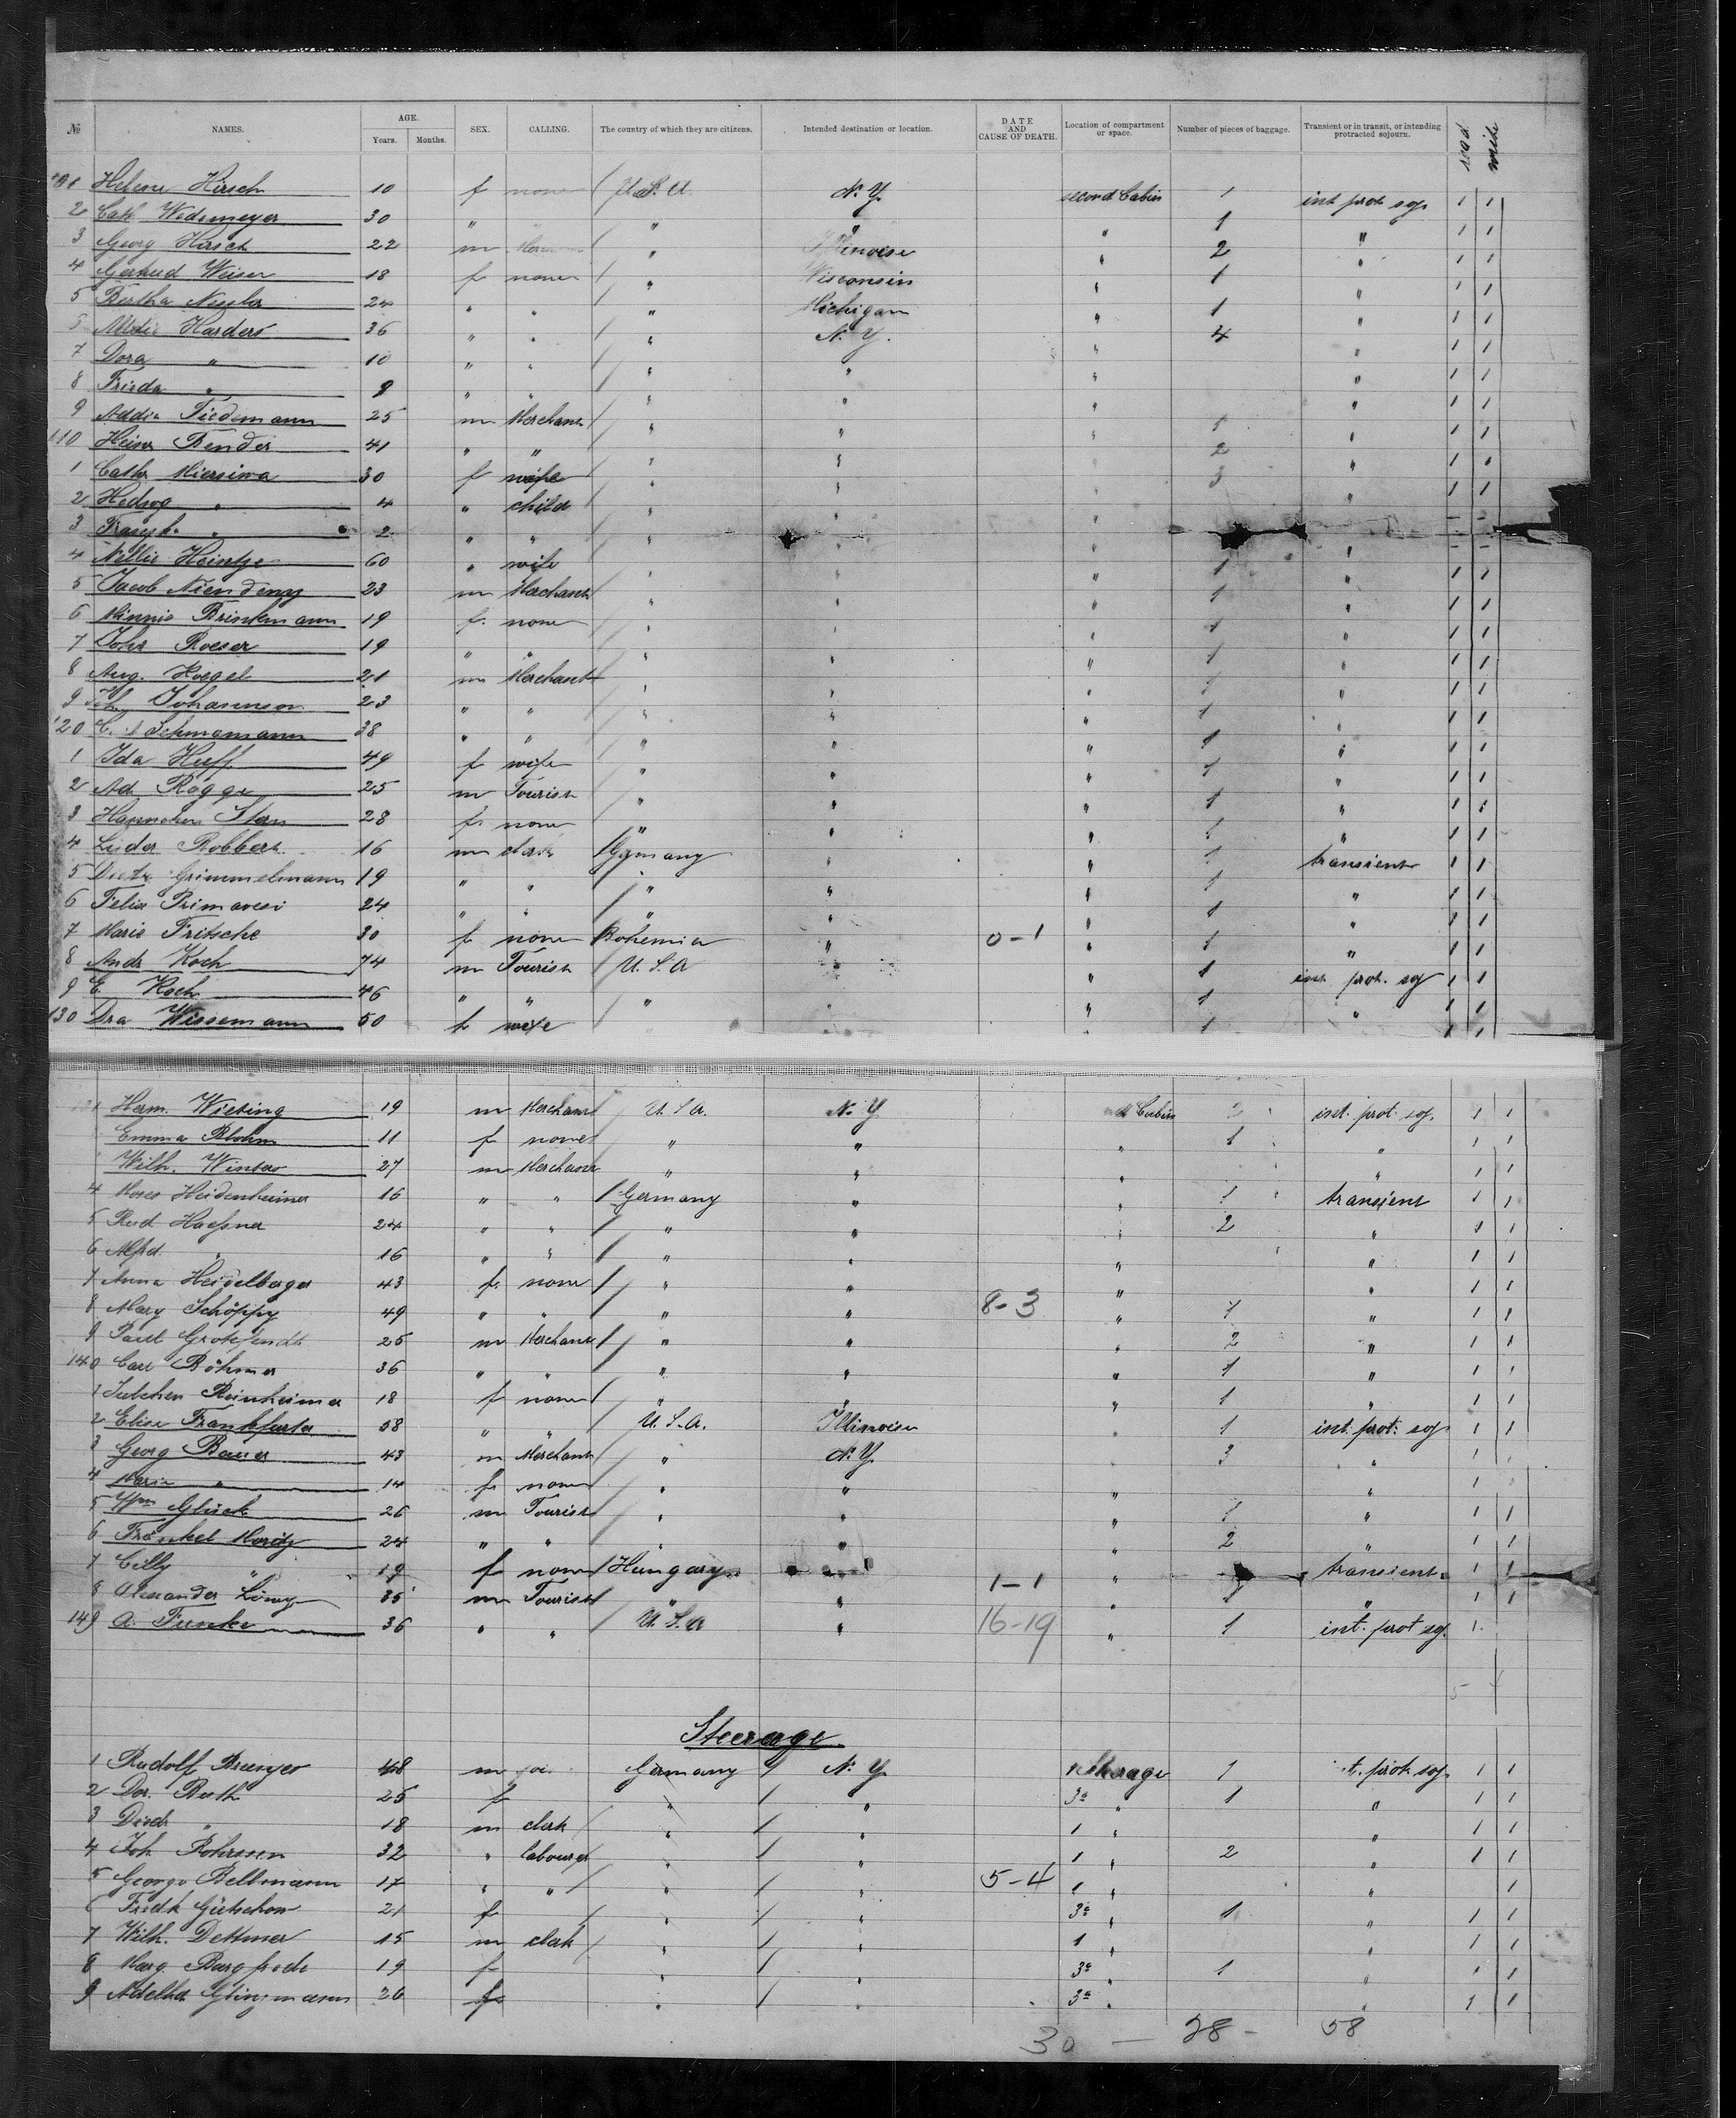 № NAMES. AGE. Years. Months. SEX. CALLING. The country of which they are citizens. Intended destination or location. DATE AND CAUSE OF DEATH. Location of compartment or space. Number of pieces of baggage. Transient or in transit, or intending protracted sojourn. read write
Helene Hirsch 10 f none U.S.A. N.Y. second Cabin 1 int prot soj. 1 1
2 Cath Wedemeyer 30 " " " " " 1 " 1 1
3 Georg Hirsch 22 m " Illinoise " 2 " 1 1
4 Gertrud Weiser 18 f none " Wisconsin " 1 1 1
5 Bertha 24 " " " Michigan " 1 " 1 1
Harders 36 " " " N.Y. " 4 " 1 1
7 Dora " 10 " " " " " " 1 1
8 Frieda " 9 " " " " " " 1 1
9 Tiedemann 25 m Merchant " " " 1 " 1 1
110 Heinr Bender 41 " " " " " 2 " 1 1
1 Cathr 30 f wife " " 3 " 1 1
2 Hedwg " 4 " child " " " "
3 " 2 " " " " " "
4 Nellie Heintze 60 " wife " " " 1 " 1 1
5 Jacob 23 m Merchant " " " 1 " 1 1
6 Minnie Brinkmann 19 f. none " " " 1 " 1 1
7 Roeser 19 " " " " " 1 " 1 1
8 Aug. Hoegel 21 m Merchant " " " 1 " 1 1
9 Joh Johannson 23 " " " " " 1 " 1 1
120 C. Schumamann 38 " " " " " 1 " 1 1
1 Ida Huff 49 f wife " " " 1 " 1 1
2 Ad Rogge 25 m Tourist " " " 1 " 1 1
3 Hannchen Stern 28 f. none " " " 1 " 1 1
4 Lüder Robbert 16 m clerk Germany " " 1 transient 1 1
5 Dietr Grimmelmann 19 " " " " " 1 " 1 1
6 Felix Primavesi 24 " " " " " 1 " 1 1
7 Marie Fritsche 30 f none Bohemia " 0-1 " 1 " 1 1
8 Andr Koch 74 m Tourist U.S.A " " 1 int. prot. soj 1 1
9 E. Koch 46 " " " " " 1 " 1 1
130 Dra Wissemann 50 f wife " " 1 1 1
Herm. Wieting 19 m Merchant U.S.A. N.Y. Cabin 2 int. prot. soj. 1 1
Emma Blohm 11 f none " " " 1 " 1 1
Wilh. Winter 27 m Merchant " " " " 1 1
4 Moses Heidenheimer 16 " " Germany " " 1 transient 1 1
5 Rud Hassner 24 " " " " " 2 " 1 1
6 Alfrd. " 16 " " " " " " 1 1
7 Anna Heidelberger 43 f. none " " " " 1 1
8 Mary Schöppy 49 " " " " 8-3 " 1 " 1 1
9 Paul Grotefendt 25 m Merchant " " " 2 " 1 1
140 Carl Böhmer 36 " " " " " 1 " 1 1
1 Julchen Reinheimer 18 f none " " " 1 " 1 1
2 Elise Frankfurter 58 " " U.S.A. Illinoise " 1 int. prot. soj. 1 1
3 Georg Bauer 43 m Merchant " N.Y. " 3 " 1
4 Marie " 14 f none " " " " 1
5 Wm Glück 26 m Tourist " " " 1 " 1 1
6 Fränkel Moritz 24 " " " " " 2 " 1 1
7 Cilly " 19 f none Hungary " 1-1 " transient. 1 1
8 Alexander Löwy 35 m Tourist " " " 1 " 1 1
149 A. Funke 36 " " U.S.A " 16-19 " 1 int. prot soj. 1
Steerage
1 Rudolf Bruenjes 48 m Germany N.Y. Steerage 1 prot soj. 1 1
2 Dor. Ruth 25 f " " 3a " 1 " 1 1
3 Died. " 18 m clerk " " 1 " " 1 1
4 Joh Rohrssen 32 " labourer " " 1 " 2 " 1 1
5 George Beltmann 17 " " " " 5-4 1 " " 1
6 Gütschow 21 f " " 3a " 1 " 1 1
7 Wilh. Dettmer 15 m clerk " " 1 " " 1 1
8 Marg Bargfrede 19 f " " 3a " 1 " 1 1
9 26 f " " 3a " " 1 1
30 — 28 - 58